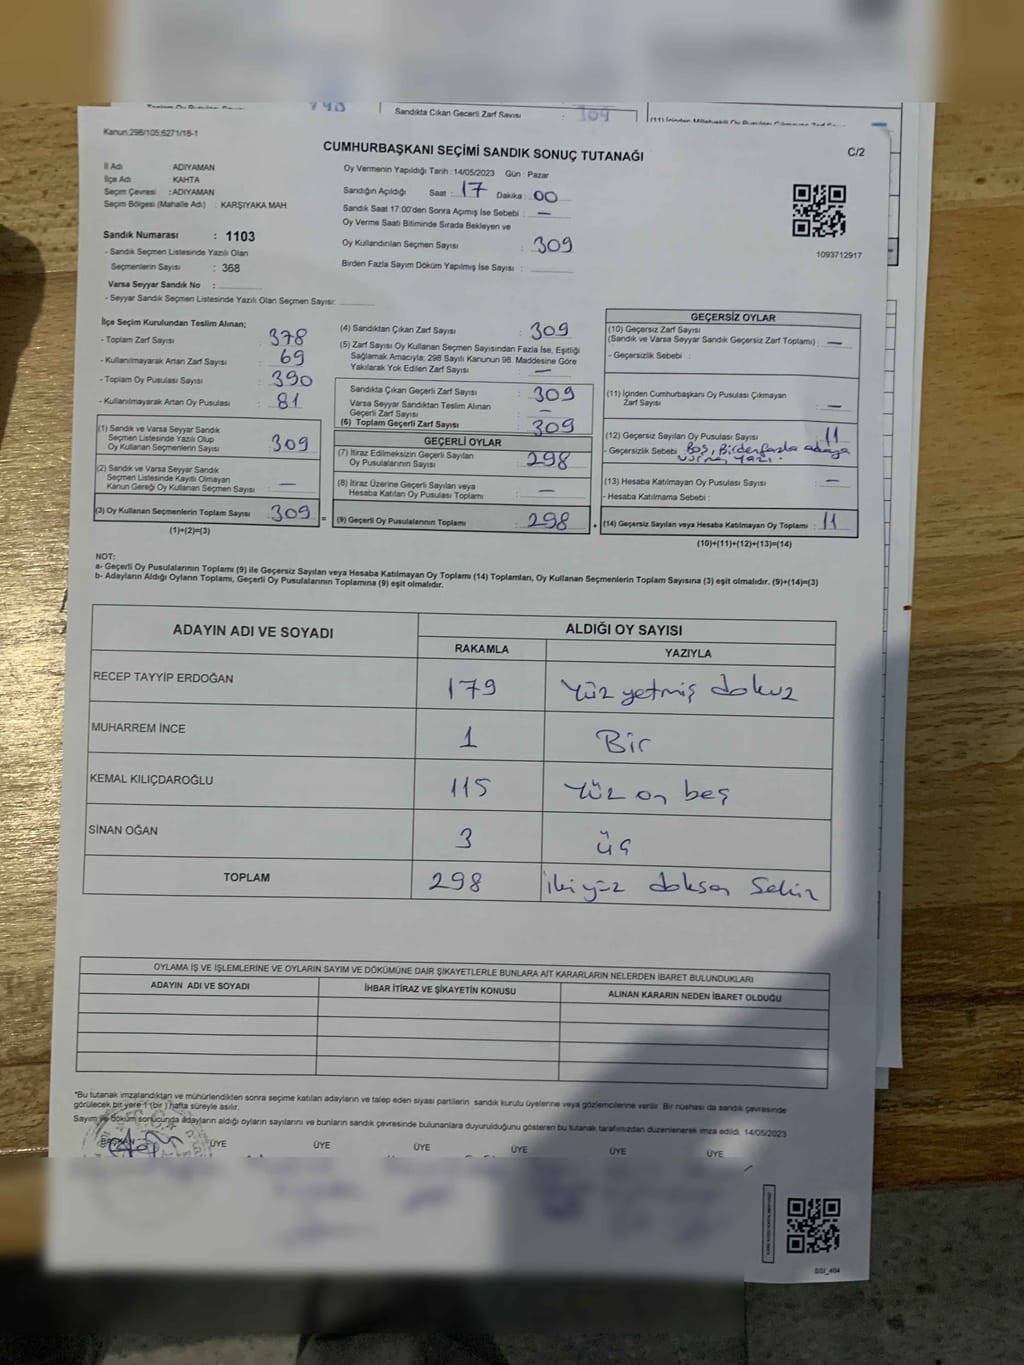 Sandıkta Çıkan Geçerli Zarf Sayısı : 309
Kanun:298/105;6271/18-1
CUMHURBAŞKANI SEÇİMİ SANDIK SONUÇ TUTANAĞI
C/2
İl Adı : ADIYAMAN
İlçe Adı : KAHTA
Seçim Çevresi : ADIYAMAN
Seçim Bölgesi (Mahalle Adı) : KARŞIYAKA MAH.
Sandık Numarası : 1103
- Sandık Seçmen Listesinde Yazılı Olan
Seçmenlerin Sayısı : 368
Varsa Seyyar Sandık No :
- Seyyar Sandık Seçmen Listesinde Yazılı Olan Seçmen Sayısı:
Oy Vermenin Yapıldığı Tarih : 14/05/2023 Gün : Pazar
Sandığın Açıldığı Saat : 17 Dakika : 00
Sandık Saat 17:00'den Sonra Açımış İse Sebebi : —
Oy Verme Saati Bitiminde Sırada Bekleyen ve
Oy Kullandırılan Seçmen Sayısı : 309
Birden Fazla Sayım Döküm Yapılmış İse Sayısı :
1093712917
İlçe Seçim Kurulundan Teslim Alınan;
- Toplam Zarf Sayısı : 378
- Kullanılmayarak Artan Zarf Sayısı : 69
- Toplam Oy Pusulası Sayısı : 390
- Kullanılmayarak Artan Oy Pusulası : 81
(1) Sandık ve Varsa Seyyar Sandık
Seçmen Listesinde Yazılı Olup
Oy Kullanan Seçmenlerin Sayısı : 309
(2) Sandık ve Varsa Seyyar Sandık
Seçmen Listesinde Kayıtlı Olmayan
Kanun Gereği Oy Kullanan Seçmen Sayısı : —
(3) Oy Kullanan Seçmenlerin Toplam Sayısı : 309 =
(1)+(2)=(3)
(4) Sandıktan Çıkan Zarf Sayısı : 309
(5) Zarf Sayısı Oy Kullanan Seçmen Sayısından Fazla İse, Eşitliği
Sağlamak Amacıyla; 298 Sayılı Kanunun 98. Maddesine Göre
Yakılarak Yok Edilen Zarf Sayısı : —
Sandıkta Çıkan Geçerli Zarf Sayısı : 309
Varsa Seyyar Sandıktan Teslim Alınan
Geçerli Zarf Sayısı : —
(6) Toplam Geçerli Zarf Sayısı : 309
GEÇERLİ OYLAR
(7) İtiraz Edilmeksizin Geçerli Sayılan
Oy Pusulasının Sayısı : 298
(8) İtiraz Üzerine Geçerli Sayılan veya
Hesaba Katılan Oy Pusulası Toplamı : —
(9) Geçerli Oy Pusulalarının Toplamı : 298 +
GEÇERSİZ OYLAR
(10) Geçersiz Zarf Sayısı
(Sandık ve Varsa Seyyar Sandık Geçersiz Zarf Toplamı) : —
- Geçersizlik Sebebi :
(11) İçinden Cumhurbaşkanı Oy Pusulası Çıkmayan
Zarf Sayısı : —
(12) Geçersiz Sayılan Oy Pusulası Sayısı : 11
- Geçersizlik Sebebi : Boş, Birden fazla adaya
(13) Hesaba Katılmayan Oy Pusulası Sayısı : —
- Hesaba Katılmama Sebebi :
(14) Geçersiz Sayılan veya Hesaba Katılmayan Oy Toplamı : 11
(10)+(11)+(12)+(13)=(14)
NOT:
a- Geçerli Oy Pusulalarının Toplamı (9) ile Geçersiz Sayılan veya Hesaba Katılmayan Oy Toplamı (14) Toplamları, Oy Kullanan Seçmenlerin Toplam Sayısına (3) eşit olmalıdır. (9)+(14)=(3)
b- Adayların Aldığı Oyların Toplamı, Geçerli Oy Pusulalarının Toplamına (9) eşit olmalıdır.
ADAYIN ADI VE SOYADI
ALDIĞI OY SAYISI
RAKAMLA YAZIYLA
RECEP TAYYİP ERDOĞAN 179 Yüz yetmiş dokuz
MUHARREM İNCE 1 Bir
KEMAL KILIÇDAROĞLU 115 Yüz on beş
SİNAN OĞAN 3 üç
TOPLAM 298 İkiyüz doksan Sekiz
OYLAMA İŞ VE İŞLEMLERİNE VE OYLARIN SAYIM VE DÖKÜMÜNE DAİR ŞİKAYETLERLE BUNLARA AİT KARARLARIN NELERDEN İBARET BULUNDUKLARI
ADAYIN ADI VE SOYADI İHBAR İTİRAZ VE ŞİKAYETİN KONUSU ALINAN KARARIN NEDEN İBARET OLDUĞU
*Bu tutanak imzalandıktan ve mühürlendikten sonra seçime katılan adayların ve talep eden siyasi partilerin sandık kurulu üyelerine veya gözlemcilerine verilir. Bir nüshası da sandık çevresinde
görülecek bir yere 1 (bir ) hafta süreyle asılır.
Sayım ve döküm sonucunda adayların aldığı oyların sayılarını ve bunların sandık çevresinde bulunanlara duyurulduğunu gösteren bu tutanak tarafımızdan düzenlenerek imza edildi. 14/05/2023
BAŞKAN ÜYE ÜYE ÜYE ÜYE ÜYE ÜYE